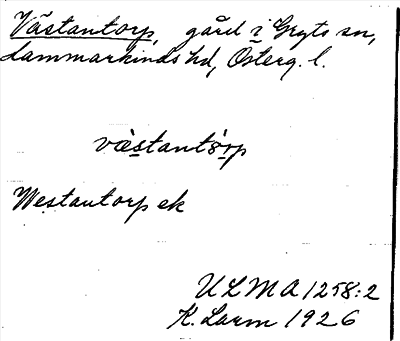 Västantorp, gård i Gryts sn,
Hammarkinds hd, Österg. l.
væ̀stantórp
Westantorp ek
ULMA 1258:2
K. Larm 1926